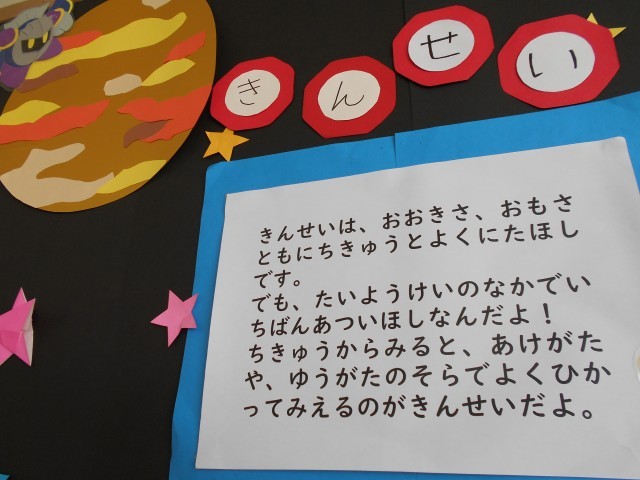 きんせい
きんせいは、おおきさ、おもさ
ともにちきゅうとよくにたほし
です。
でも、たいようけいのなかでい
ちばんあついほしなんだよ！
ちきゅうからみると、あけがた
や、ゆうがたのそらでよくひか
ってみえるのがきんせいだよ。